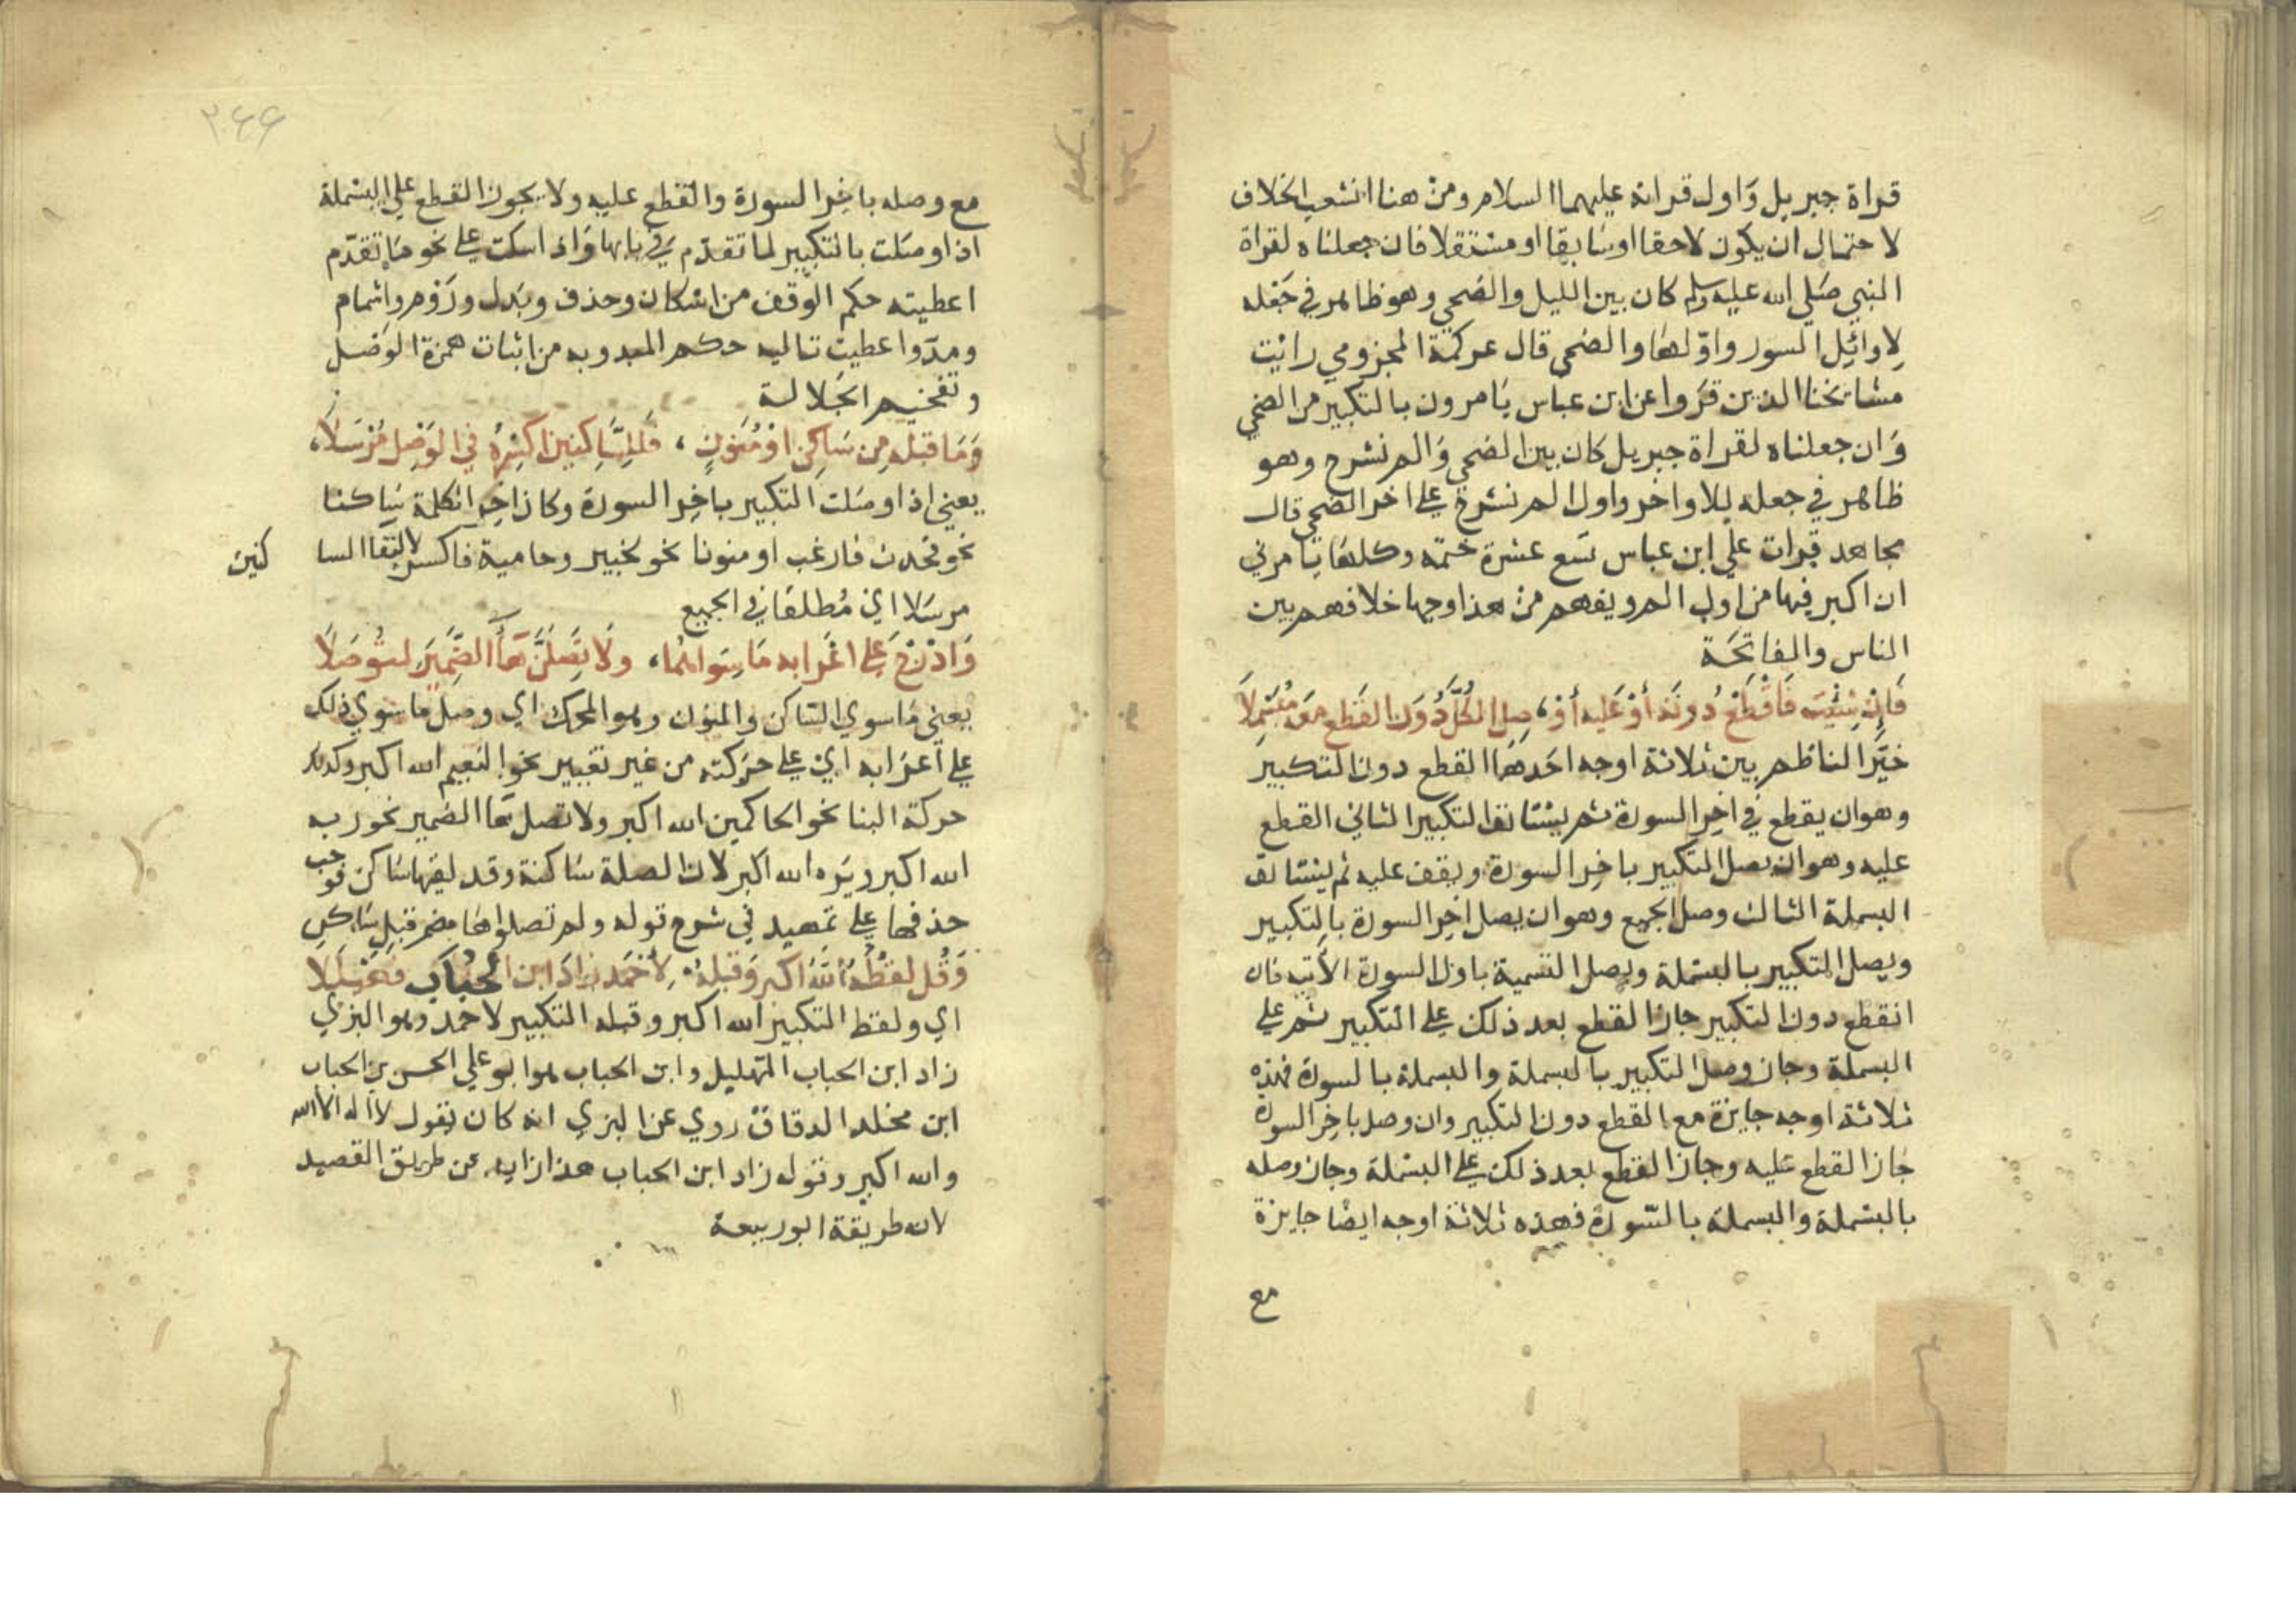 قراة جبريل وَاول قرانه عليهما السلام ومن هنا انشعب الخلاف
لاحتمال ان يكون لاحقا اوسَابقا او مستقلا فان جعلناه لقراة
النبي صَلي الله عليه وسلم كان بين الليل والضحي وهو ظاهر في جَعْله
لِاوائِل السور واوّلهَا والضحى قال عركمة المخزومي رايْت
مشايخنا الذين قرَوا عن ابن عباس يَامرون بالتكبير من الضحي
وَان جعلناه لقراة جبريل كان بين الضحي وَالم نشرح وهو
ظاهر في جعله للاواخر واول الم نشرح علي اخر الضحي قال
مجاهد قرات علي ابن عباس تسَع عشرة ختمة وكلهَا يَامرني
ان اكبر فيها من اول الم ويفهم من هذا وجها خلافهم بين
الناس والفاتحَة
فَاِنْ شِئْتَ فَاقْطَعْ دُونَهُ أوْ عَليه أوْ، صِلِ الكُلَّ دُونَ القَطعِ مَعَهُ مُبَسْمِلَا
خيَّر الناظم بين ثلاثة اوجه احَدهَا القطع دون التكبير
وهو ان يقطع في اخِر السورة ثم يسْتانف التكبير الثاني القطع
عليه وهو ان يصل التكبير باخِر السورة ويقف عليه ثم يسْتانف
البسملة الثالث وصل الجميع وهو ان يصل اخِر السورة بالتكبير
ويصل التكبير بالبسْملة ويصل التسمية باول السورة الآتية فان
انقطع دون التكبير جاز القطع بعد ذلك علي التكبير ثم علي
البسملة وجاز وصل التكبير بالبسملة والبسملة بالسورة فهذه
ثلاثة اوجه جايزة مع القطع دون التكبير وان وصل باخِر السورة
جَاز القطع عليه وجاز القطع بعد ذلك علي البسْملة وجاز وصله
بالبسْملة والبسملة بالسّورة فهذه ثلاثة اوجه ايضًا جايزة
مع
٣٤٤
مع وصله باخِر السورة والقطع عليه ولا يجوز القطع علي البسْملة
اذا وصَلت بالتكبير لما تقدّم في بابها وَاذا سكت علي نحو مَا تقدّم
اعطيته حكم الوقف من اسْكان وحذف وبَدل ورَوْم واشمام
ومدّ واعطيت تاليه حكم المبدو به من اثبات همزة الوَصْل
وتفخيم الجَلالة
وَمَا قبْلَه مِن سَاكِنٍ اوْ مُنَوَّنٍ، فَلِلسَّاكِنينِ اكْسِرْهُ في الوَصْلِ مُرْسَلَا،
يعني اذا وصَلت التكبير باخِر السورة وكان اخِر الكلمة سَاكنا
نحو فحدث فارغب او منونا نحو لخبير وحامية فاكسر لالتقا السا كنين
مرسَلا اي مُطلقا في الجميع
وَادْرِجْ عَلي اعْرَابه مَا سِوَاهُمَا، ولَا تَصِلَنَّ هَاَ الضَّمِيرِ لتُوصَلَا
يعني مَا سوي السّاكن والمنون وهو المحرك اي وصل مَا سوي ذلك
علي اعرَابه اي علي حرَكته من غير تغيير نحو النعيم الله اكبر وكذلك
حركة البنا نحو الحاكمين الله اكبر ولا تصل هَا الضمير نحو ربه
الله اكبر ويَره الله اكبر لان الصلة سَاكنة وقد لقيها سَاكن فوجب
حذفها علي تمهيد في شرح قوله ولم تصلوا هَا مضمر قبل سَاكن
وَقُل لفظُهُ اَللّٰهُ اكبر وَقَبلَهُ، لِأحْمَد زادَ ابن الحُبَاب فَهَيْلَلَا
اي ولفظ التكبير الله اكبر وقبله التكبير لاحمد وهو البزي
زاد ابن الحباب التهليل وابن الحباب هو ابو علي الحسن بن الحباب
ابن مخلد الدقاق روي عن البزي انه كان يقول لا اله الا الله
والله اكبر وقوله زاد ابن الحباب هذا زايد عن طريق القصيد
لانه طريقة ابو ربيعة